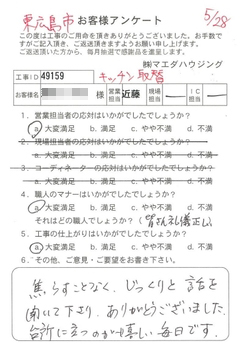 東広島市 お客様アンケート 5/28
この度は工事のご用命を頂きありがとうございました。お手数で
すがご記入頂き、ご返送頂きますようお願い申し上げます。
ご返送頂いた方から、毎月抽選で感謝品を進呈します。
㈱マエダハウジング
工事ID 49159 キッチン取替
お客様名 様 営業担当 近藤 現場担当 ー IC担当 ー
1. 営業担当者の応対はいかがでしたでしょうか?
a.大変満足 b. 満足 c. やや不満 d. 不満
2. 現場担当者の応対はいかがでしたでしょうか?
a. 大変満足 b. 満足 c. やや不満 d. 不満
3. コーディネーターの応対はいかがでしたでしょうか?
a. 大変満足 b. 満足 c. やや不満 d. 不満
4. 職人のマナーはいかがでしたでしょうか?
a.大変満足 b. 満足 c. やや不満 d. 不満
それはどの職人でしょうか?(皆さん礼儀正しい)
5. 工事の仕上がりはいかがでしたでしょうか?
a.大変満足 b. 満足 c. やや不満 d. 不満
6. その他、ご意見・ご要望をお書き下さい。
焦らすことなく、じっくりと話を
聞いて下さり、ありがとうございました。
台所に立つのが嬉しい毎日です。